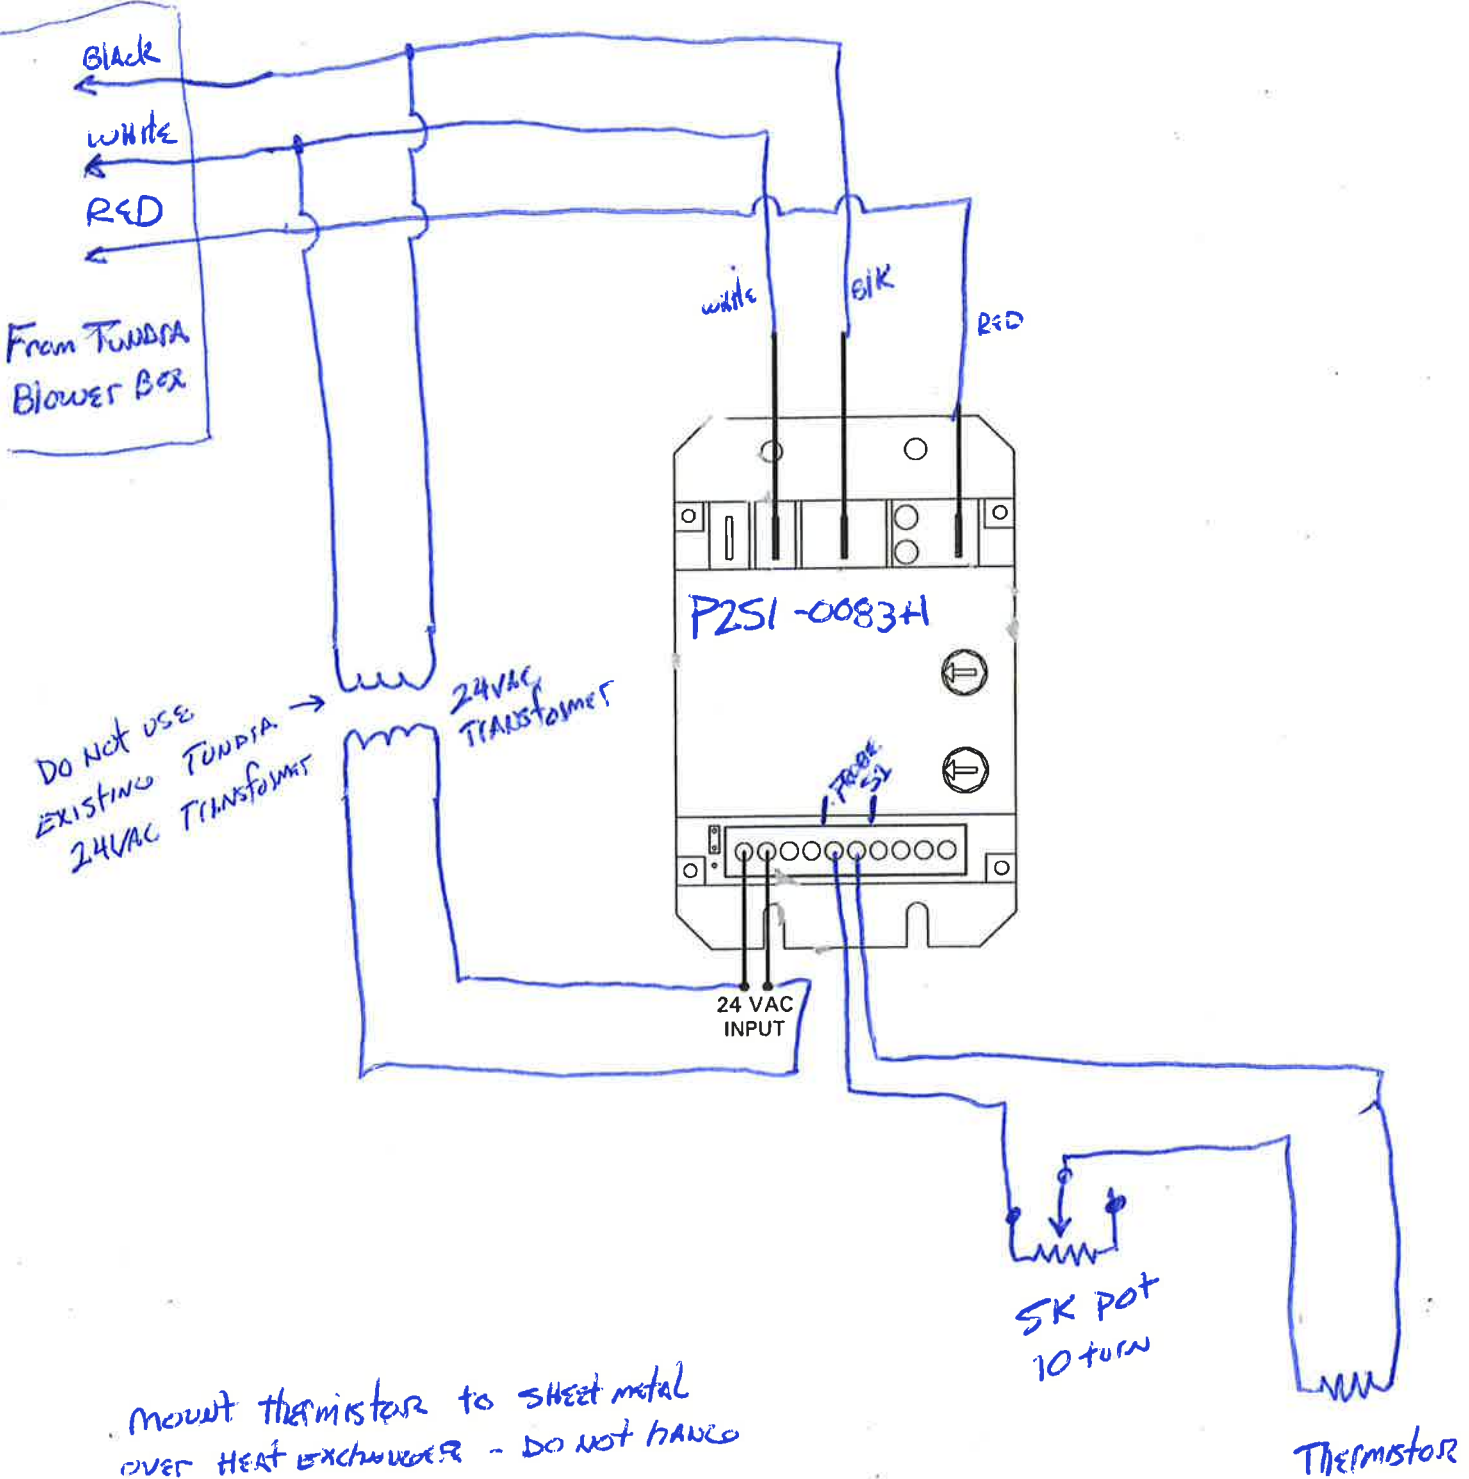 Black
WHITE
RED
From TUNDRA
Blower Box
white
BlK
RED
P251-0083H
24VAC
TRANSformer
DO Not USE
EXISTING TUNDRA
24VAC TRANSformer
PROBE
S2
24 VAC
INPUT
5K POT
10 turn
Thermistor
mount thermistor to SHEET metal
over HEAT EXCHANGER - DO NOT HANG